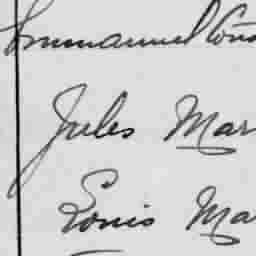 Emmanuel Cons
Jules Mar
Louis Ma